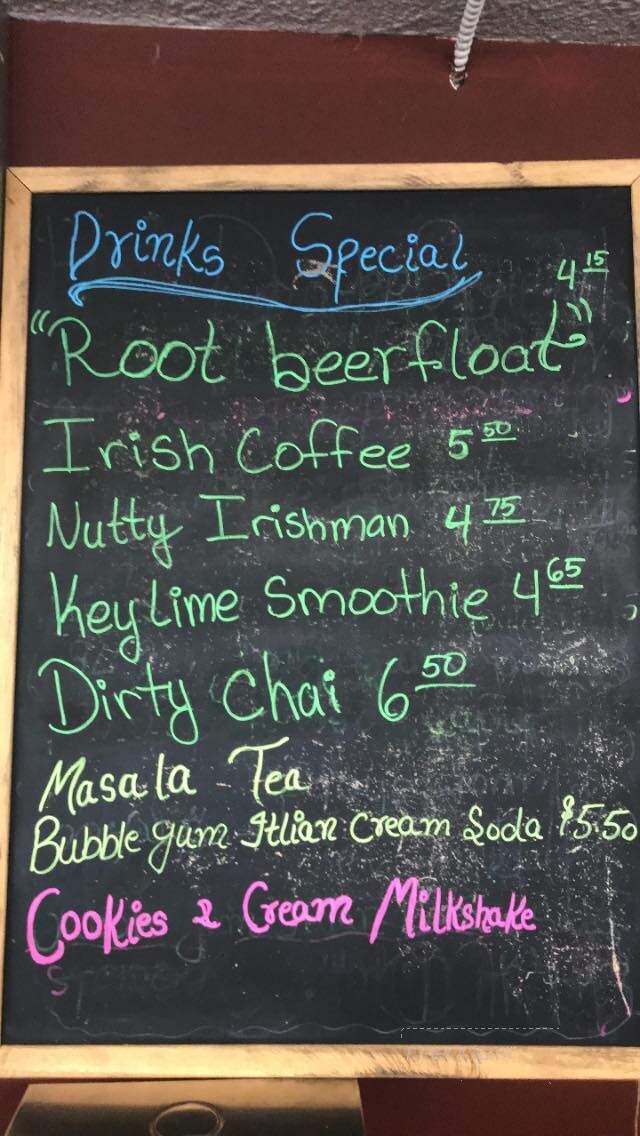 Drinks Special
4 15
"Root beerfloat"
Irish Coffee 5 50
Nutty Irishman 4 75
Key Lime Smoothie 4 65
Dirty Chai 6 50
Masala Tea
Bubble gum Itlian Cream Soda $5.50
Cookies & Cream Milkshake